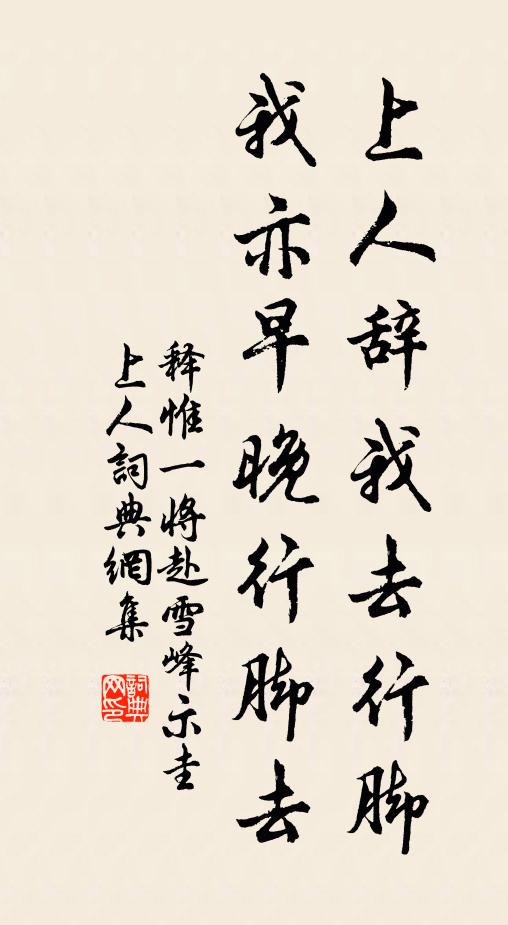 上人辞我去行脚
我亦早晚行脚去
释惟一将赴雪峰示圭
上人詞典網集
詞典网印